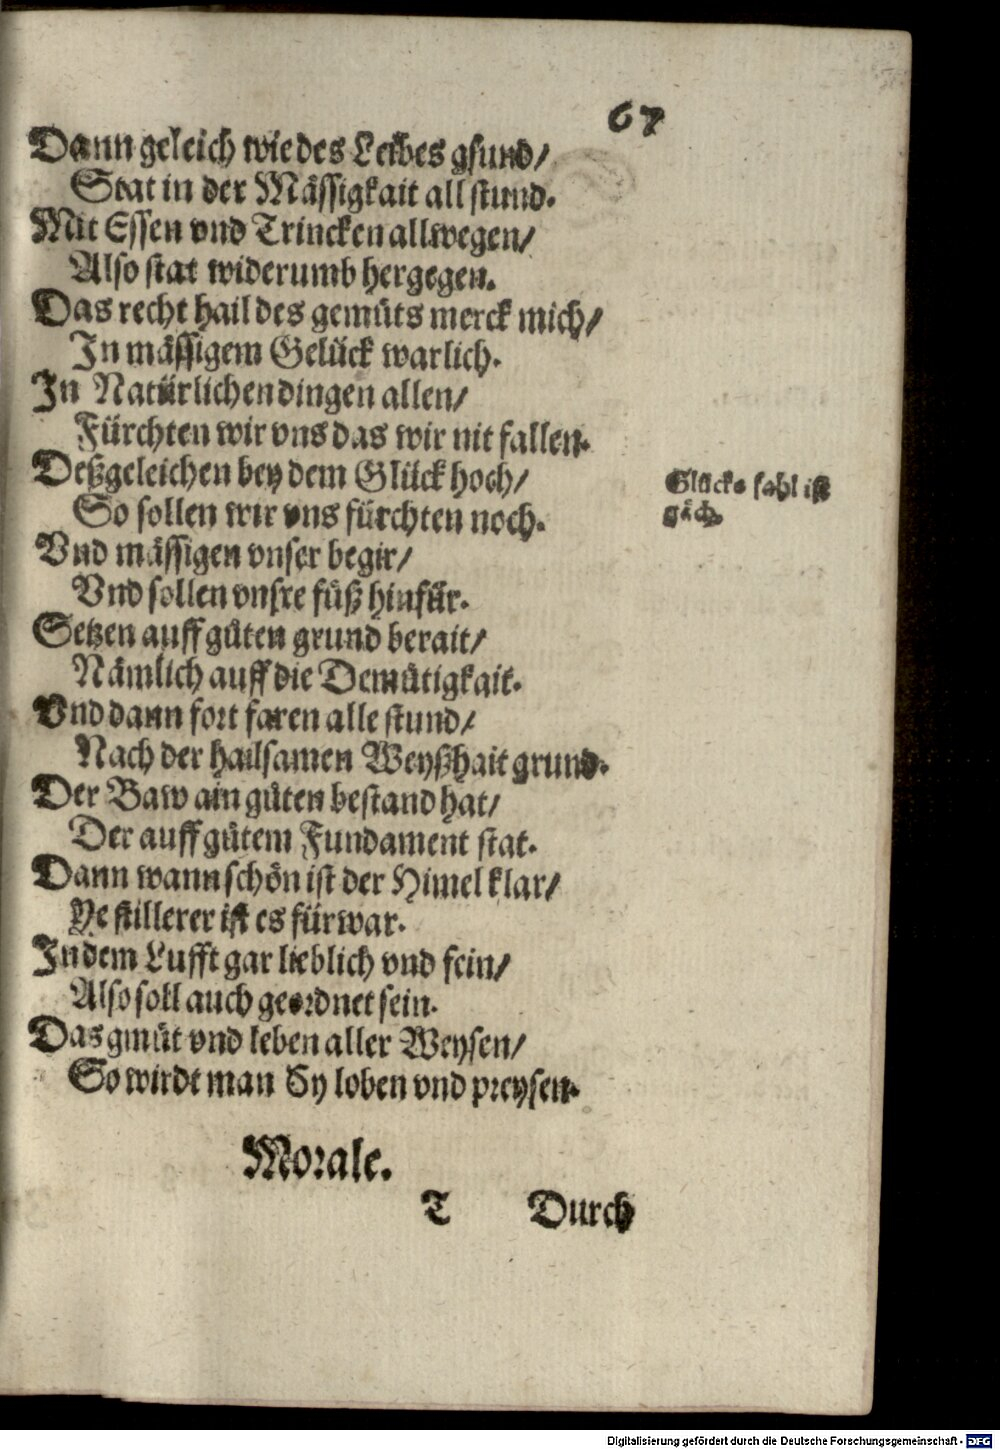 67
Dann geleich wie des Leibes gsund/
Stat in der Mässigkait all stund.
Mit Essen vnd Trincken allwegen/
Also stat widerumb hergegen.
Das recht hail des gemüts merck mich/
In mässigem Gelück warlich.
In Natürlichen dingen allen/
Fürchten wir vns das wir nit fallen.
Deßgeleichen bey dem Glück hoch/
So sollen wir vns fürchten noch.
Glücks fahl ist
gäch.
Vnd mässigen vnser begir/
Vnd sollen vnsre füß hinfür.
Setzen auff gůten grund berait/
Nämlich auff die Demütigkait.
Vnd dann fort faren alle stund/
Nach der hailsamen Weyßhait grund.
Der Baw ain gůten bestand hat/
Der auff gůtem Fundament stat.
Dann wann schön ist der Himel klar/
Ye stillerer ist es fürwar.
In dem Lufft gar lieblich vnd fein/
Also soll auch geordnet sein.
Das gmüt vnd leben aller Weysen/
So wirdt man Sy loben vnd preysen.
Morale.
T Durch
Digitalisierung gefördert durch die Deutsche Forschungsgemeinschaft - DFG